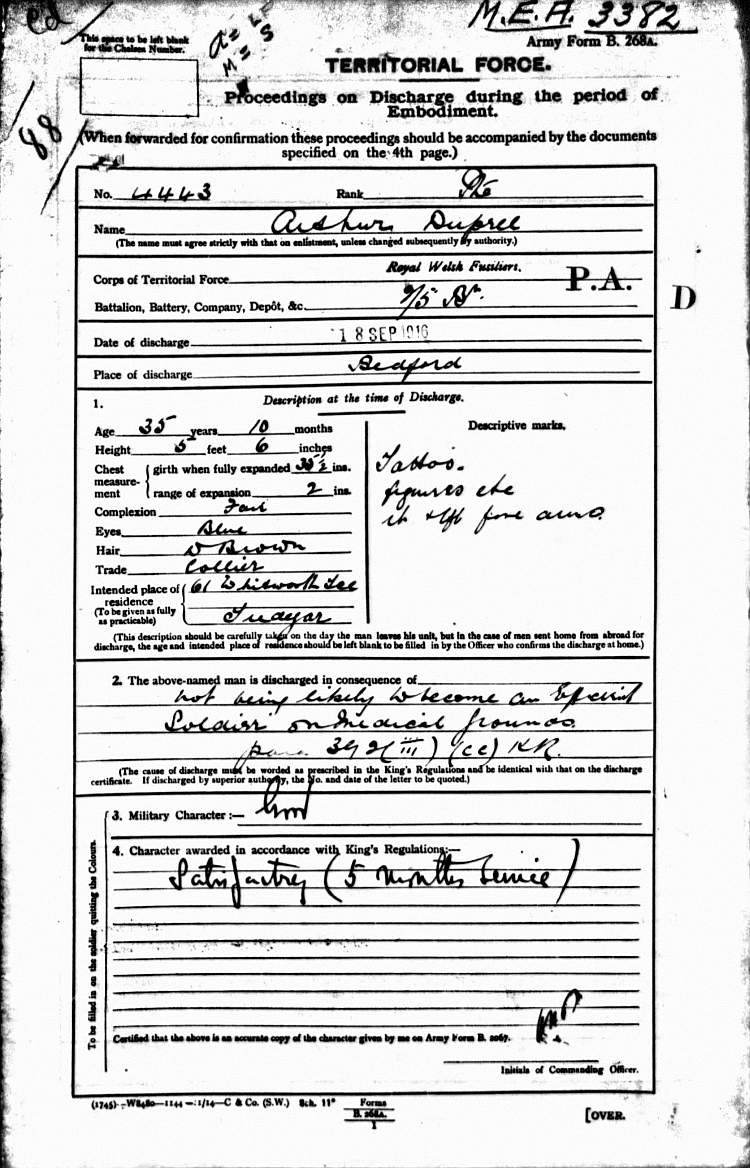 M.E.F. 3382
This space to be left blank
for the Chelsea Number.
Army Form B. 268A.
TERRITORIAL FORCE.
88
Proceedings on Discharge during the period of
Embodiment.
(When forwarded for confirmation these proceedings should be accompanied by the documents
specified on the 4th page.)
No. 4443 Rank Pte
Name Arthur Dupree
(The name must agree strictly with that on enlistment, unless changed subsequently by authority.)
Corps of Territorial Force Royal Welsh Fusiliers.
P.A.
D
Battalion, Battery, Company, Depôt, &c.
Date of discharge 18 SEP 1916
Place of discharge Bedford
1. Description at the time of Discharge.
Age 35 years 10 months
Height 5 feet 6 inches
Chest measurement
girth when fully expanded 35½ ins.
range of expansion 2 ins.
Complexion
Eyes Blue
Hair D Brown
Trade Collier
Intended place of residence 61 Whitworth
(To be given as fully as practicable)
Descriptive marks.
Tattoo.
figures etc
rt & lft fore arms.
(This description should be carefully taken on the day the man leaves his unit, but in the case of men sent home from abroad for
discharge, the age and intended place of residence should be left blank to be filled in by the Officer who confirms the discharge at home.)
2. The above-named man is discharged in consequence of
not being likely to become an Efficient
Soldier on Medical grounds.
para 392 (III) (cc) KR.
(The cause of discharge must be worded as prescribed in the King's Regulations and be identical with that on the discharge
certificate. If discharged by superior authority, the No. and date of the letter to be quoted.)
To be filled in on the soldier quitting the Colours.
3. Military Character:— Good
4. Character awarded in accordance with King's Regulations:—
Satisfactory (5 months service)
Certified that the above is an accurate copy of the character given by me on Army Form B. 2067.
Initials of Commanding Officer.
(1745)—W8480—1144—1/14—C & Co. (S.W.) Sch. 11* Forms
B. 268A.
1
[OVER.